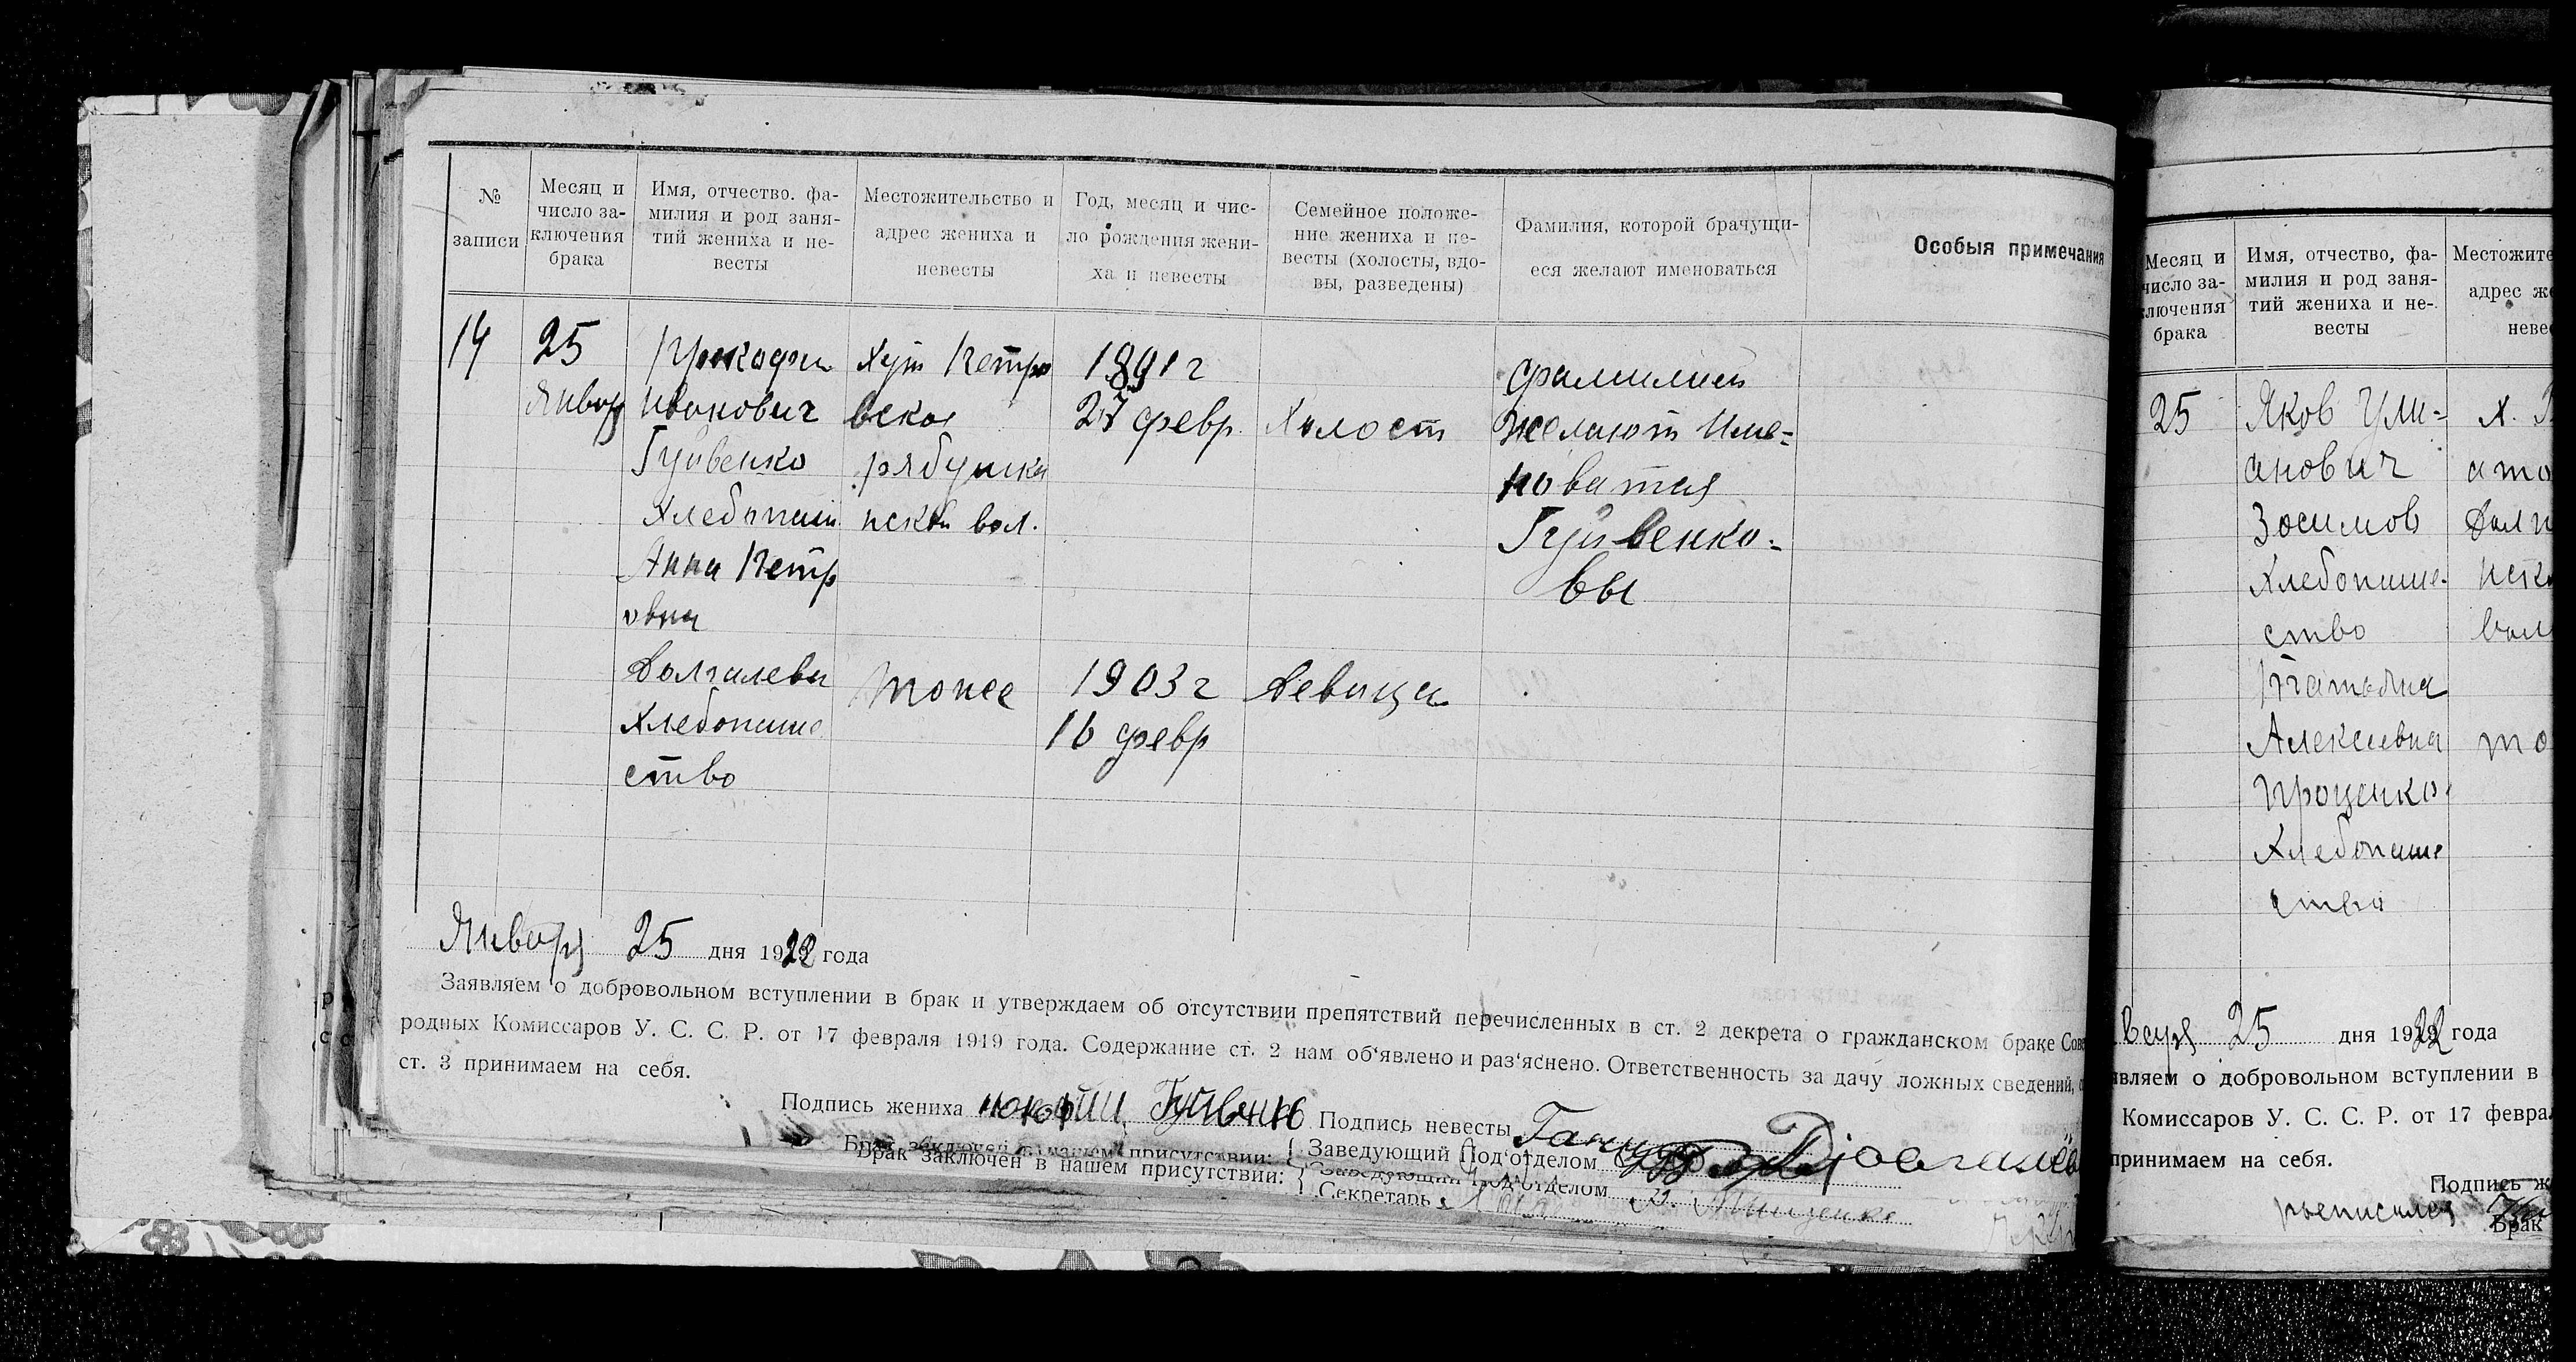 № записи
Месяц и число заключения брака
Имя, отчество. фамилия и род занятий жениха и невесты
Местожительство и адрес жениха и невесты
Год, месяц и число рождения жениха и невесты
Семейное положение жениха и невесты (холосты, вдовы, разведены)
Фамилия, которой брачущиеся желают именоваться
Особыя примечания
14
25
Январ
Прокофи
Иванович
Гуйвенко
Хлебопаш
Анна Петр
овна
Долгалева
Хлебопаше
ство
Хут Петро
вская
рябушки
нской вол.
тоже
1891 г
27 февр.
1903 г
16 февр
Холост
Девица
Фамилией
желают Име-
новатся
Гуйвенко-
вы
Январ 25 дня 1922 года
Заявляем о добровольном вступлении в брак и утверждаем об отсутствии препятствий перечисленных в ст. 2 декрета о гражданском браке Сове
родных Комиссаров У. С. С. Р. от 17 февраля 1919 года. Содержание ст. 2 нам об'явлено и раз'яснено. Ответственность за дачу ложных сведений,
ст. 3 принимаем на себя.
Подпись жениха Гуйвенко Подпись невесты
Брак заключен в нашем присутствии: Заведующий Под'отделом
Брак заключен в нашем присутствии: Заведующий Под'отделом
Секретарь
Месяц и
число за-
ключения
брака
Имя, отчество, фа-
милия и род заня-
тий жениха и не-
весты
Местожите
адрес же
невес
25
Яков Ули-
анович
Зосимов
Хлебопаше-
ство
Татьяна
Алексеевна
Проценко
Хлебопаше
ство
х.
ато
Вол
то
25 дня 1922 года
являем о добровольном вступлении в
Комиссаров У. С. С. Р. от 17 феврал
принимаем на себя.
Подпись ж
Брак